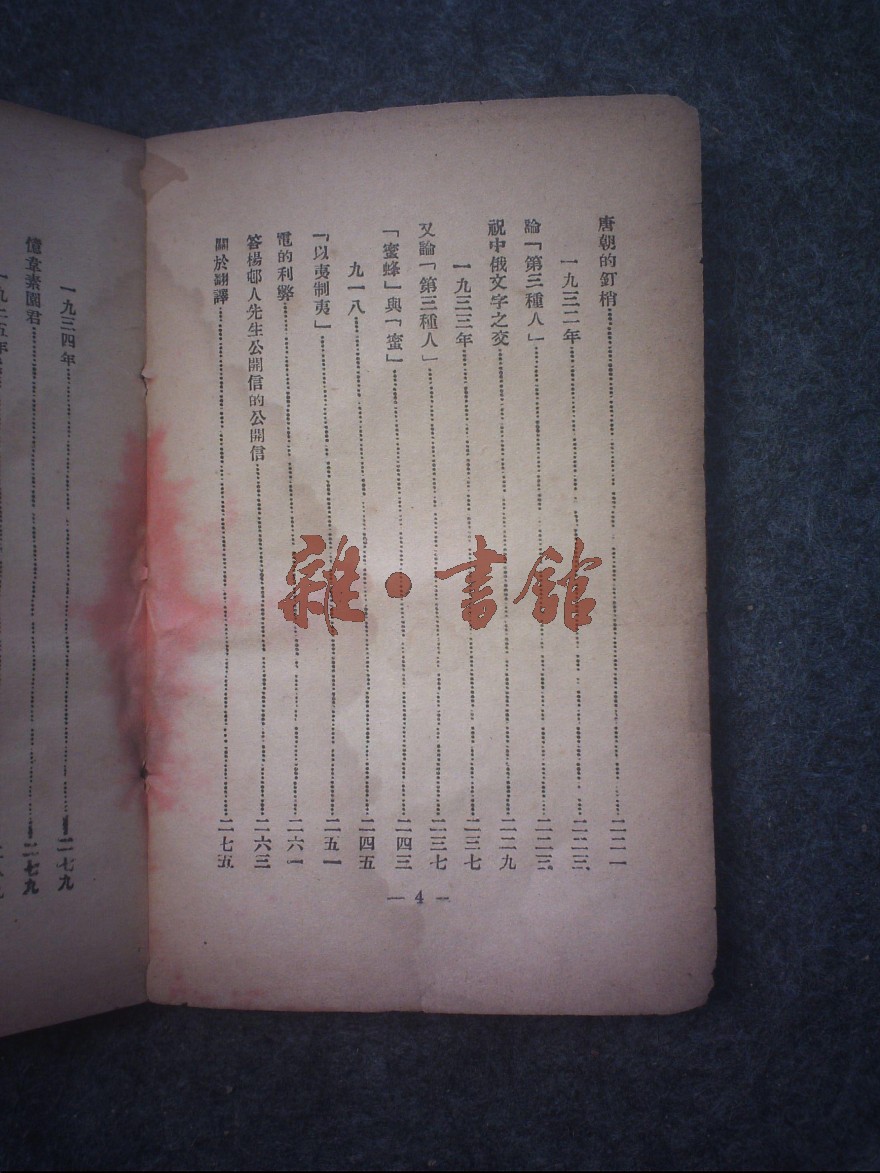 唐朝的釘梢……二二一
一九三二年……二二三
論「第三種人」……二二三
祝中俄文字之交……二二九
一九三三年……二三七
又論「第三種人」……二三七
「蜜蜂」與「蜜」……二四三
九一八……二四五
「以夷制夷」……二五一
電的利弊……二六一
答楊邨人先生公開信的公開信……二六三
關於翻譯……二七五
— 4 —
一九三四年……二七九
憶韋素園君……二七九
雜·書館